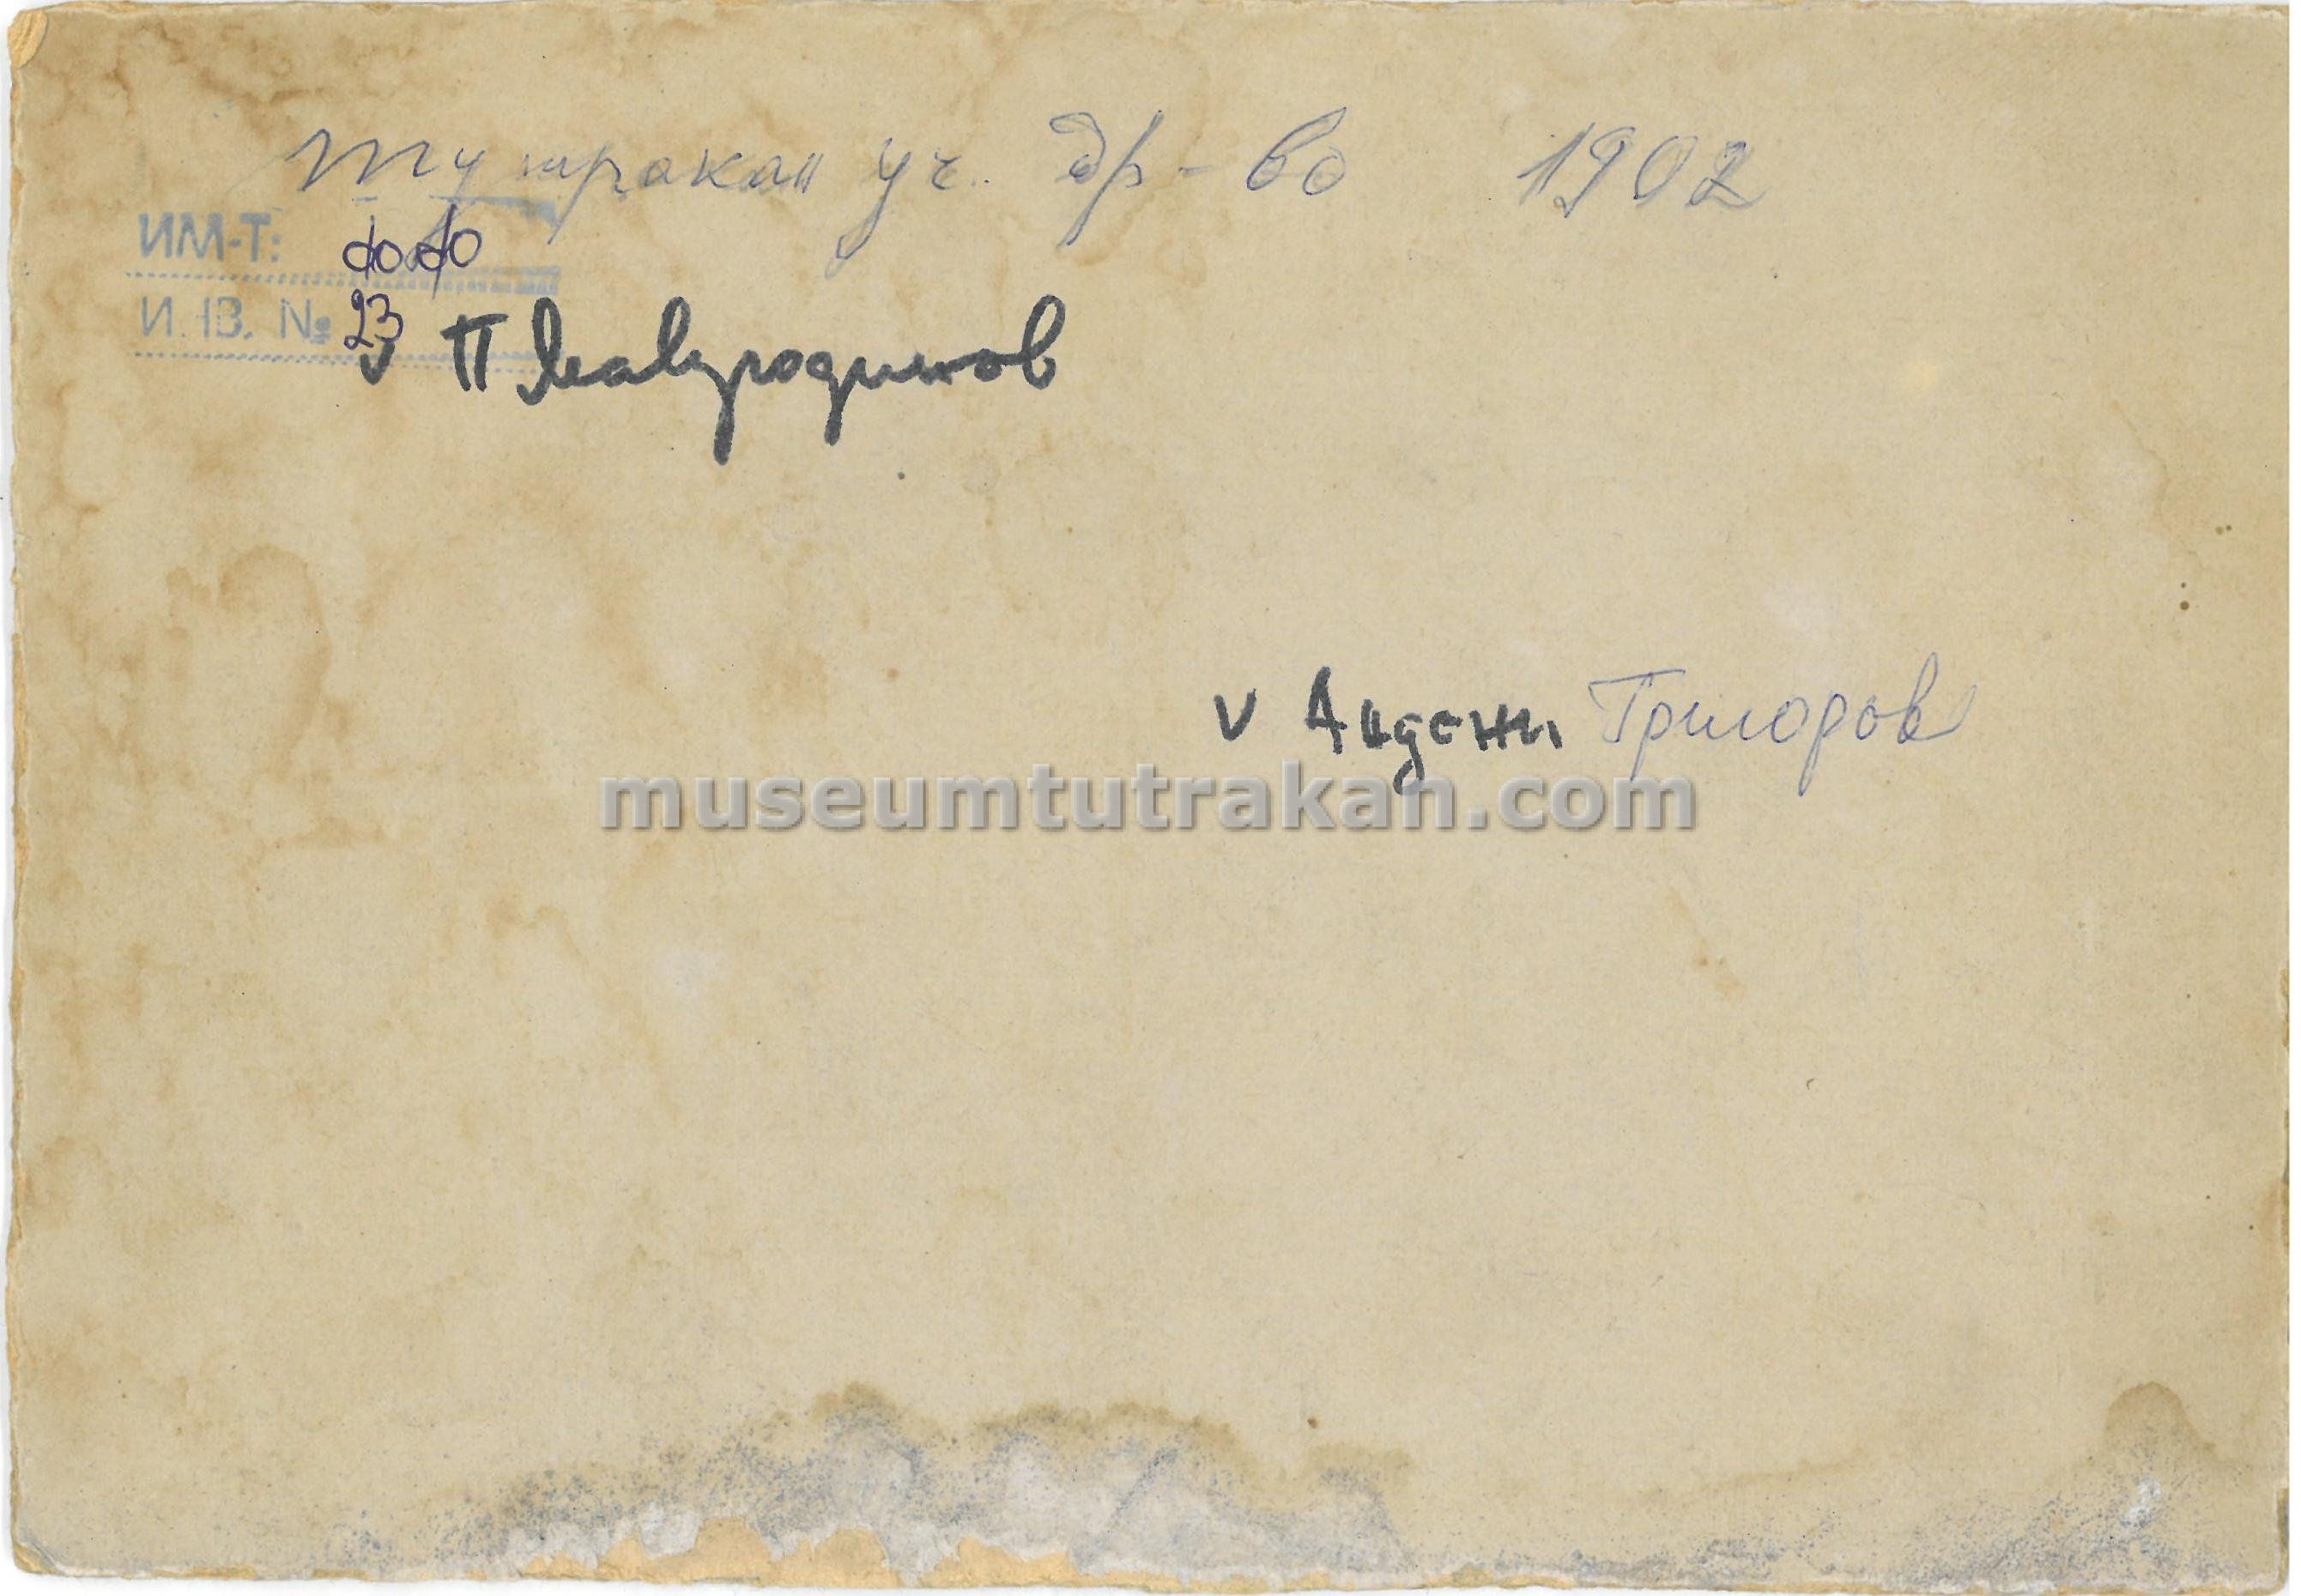 Тутракан уч. др-во 1902
ИМ-Т: ФоФо
И НВ. № 23
v П Мавродинов
v Андени Григоров
museumtutrakan.com